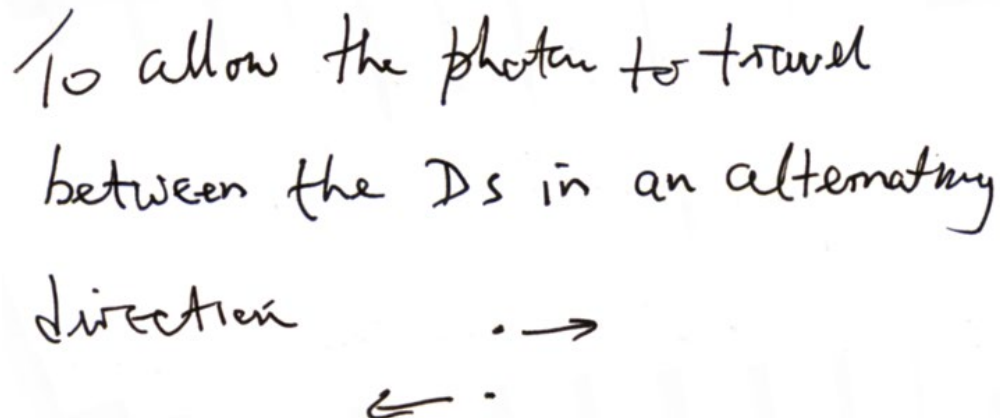 To allow the photon to travel
between the Ds in an alternating
direction